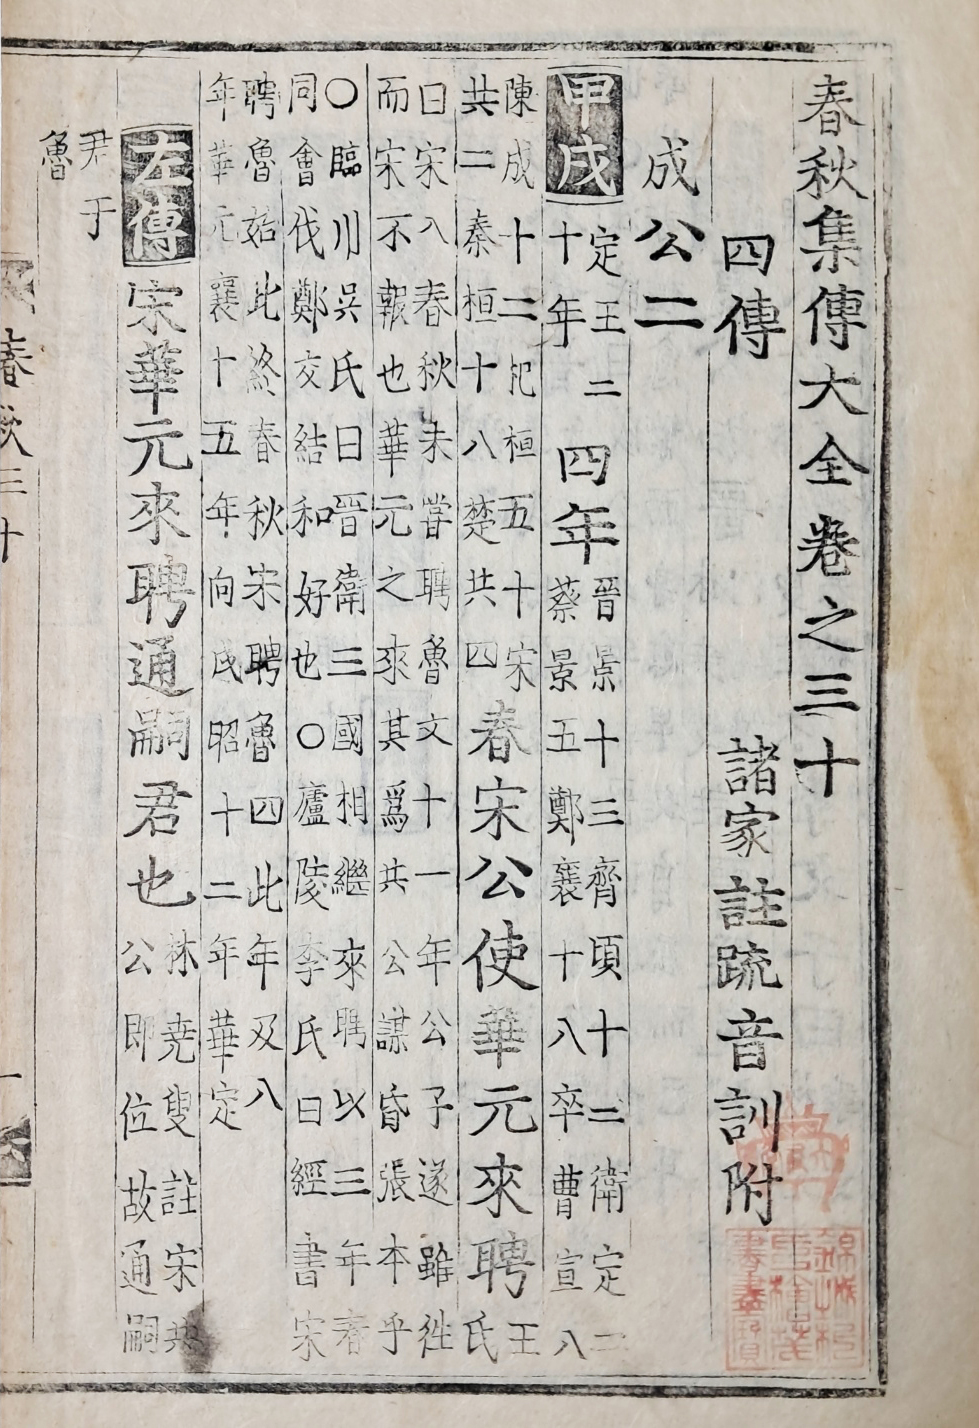 春秋集傳大全卷之三十
四傳 諸家註䟽音訓附
成公二
甲戌 定王二
十年 四年 晉景十三齊頃十二衛定二
蔡景五鄭襄十八卒曹宣八
陳成十二杞桓五十宋
共二秦桓十八楚共四 春宋公使華元來聘 王
氏
曰宋入春秋未嘗聘魯文十一年公子遂雖徃
而宋不報也華元之來其爲共公謀昏張本乎
○臨川吳氏曰晉衛三國相繼來聘以三年春
同會伐鄭交結和好也○廬陵李氏曰經書宋
聘魯始此終春秋宋聘魯四此年及八
年華元襄十五年向戌昭十二年華定
左傳 宋華元來聘通嗣君也 林堯叟註宋共
公即位故通嗣
君于
魯
春秋三十 一